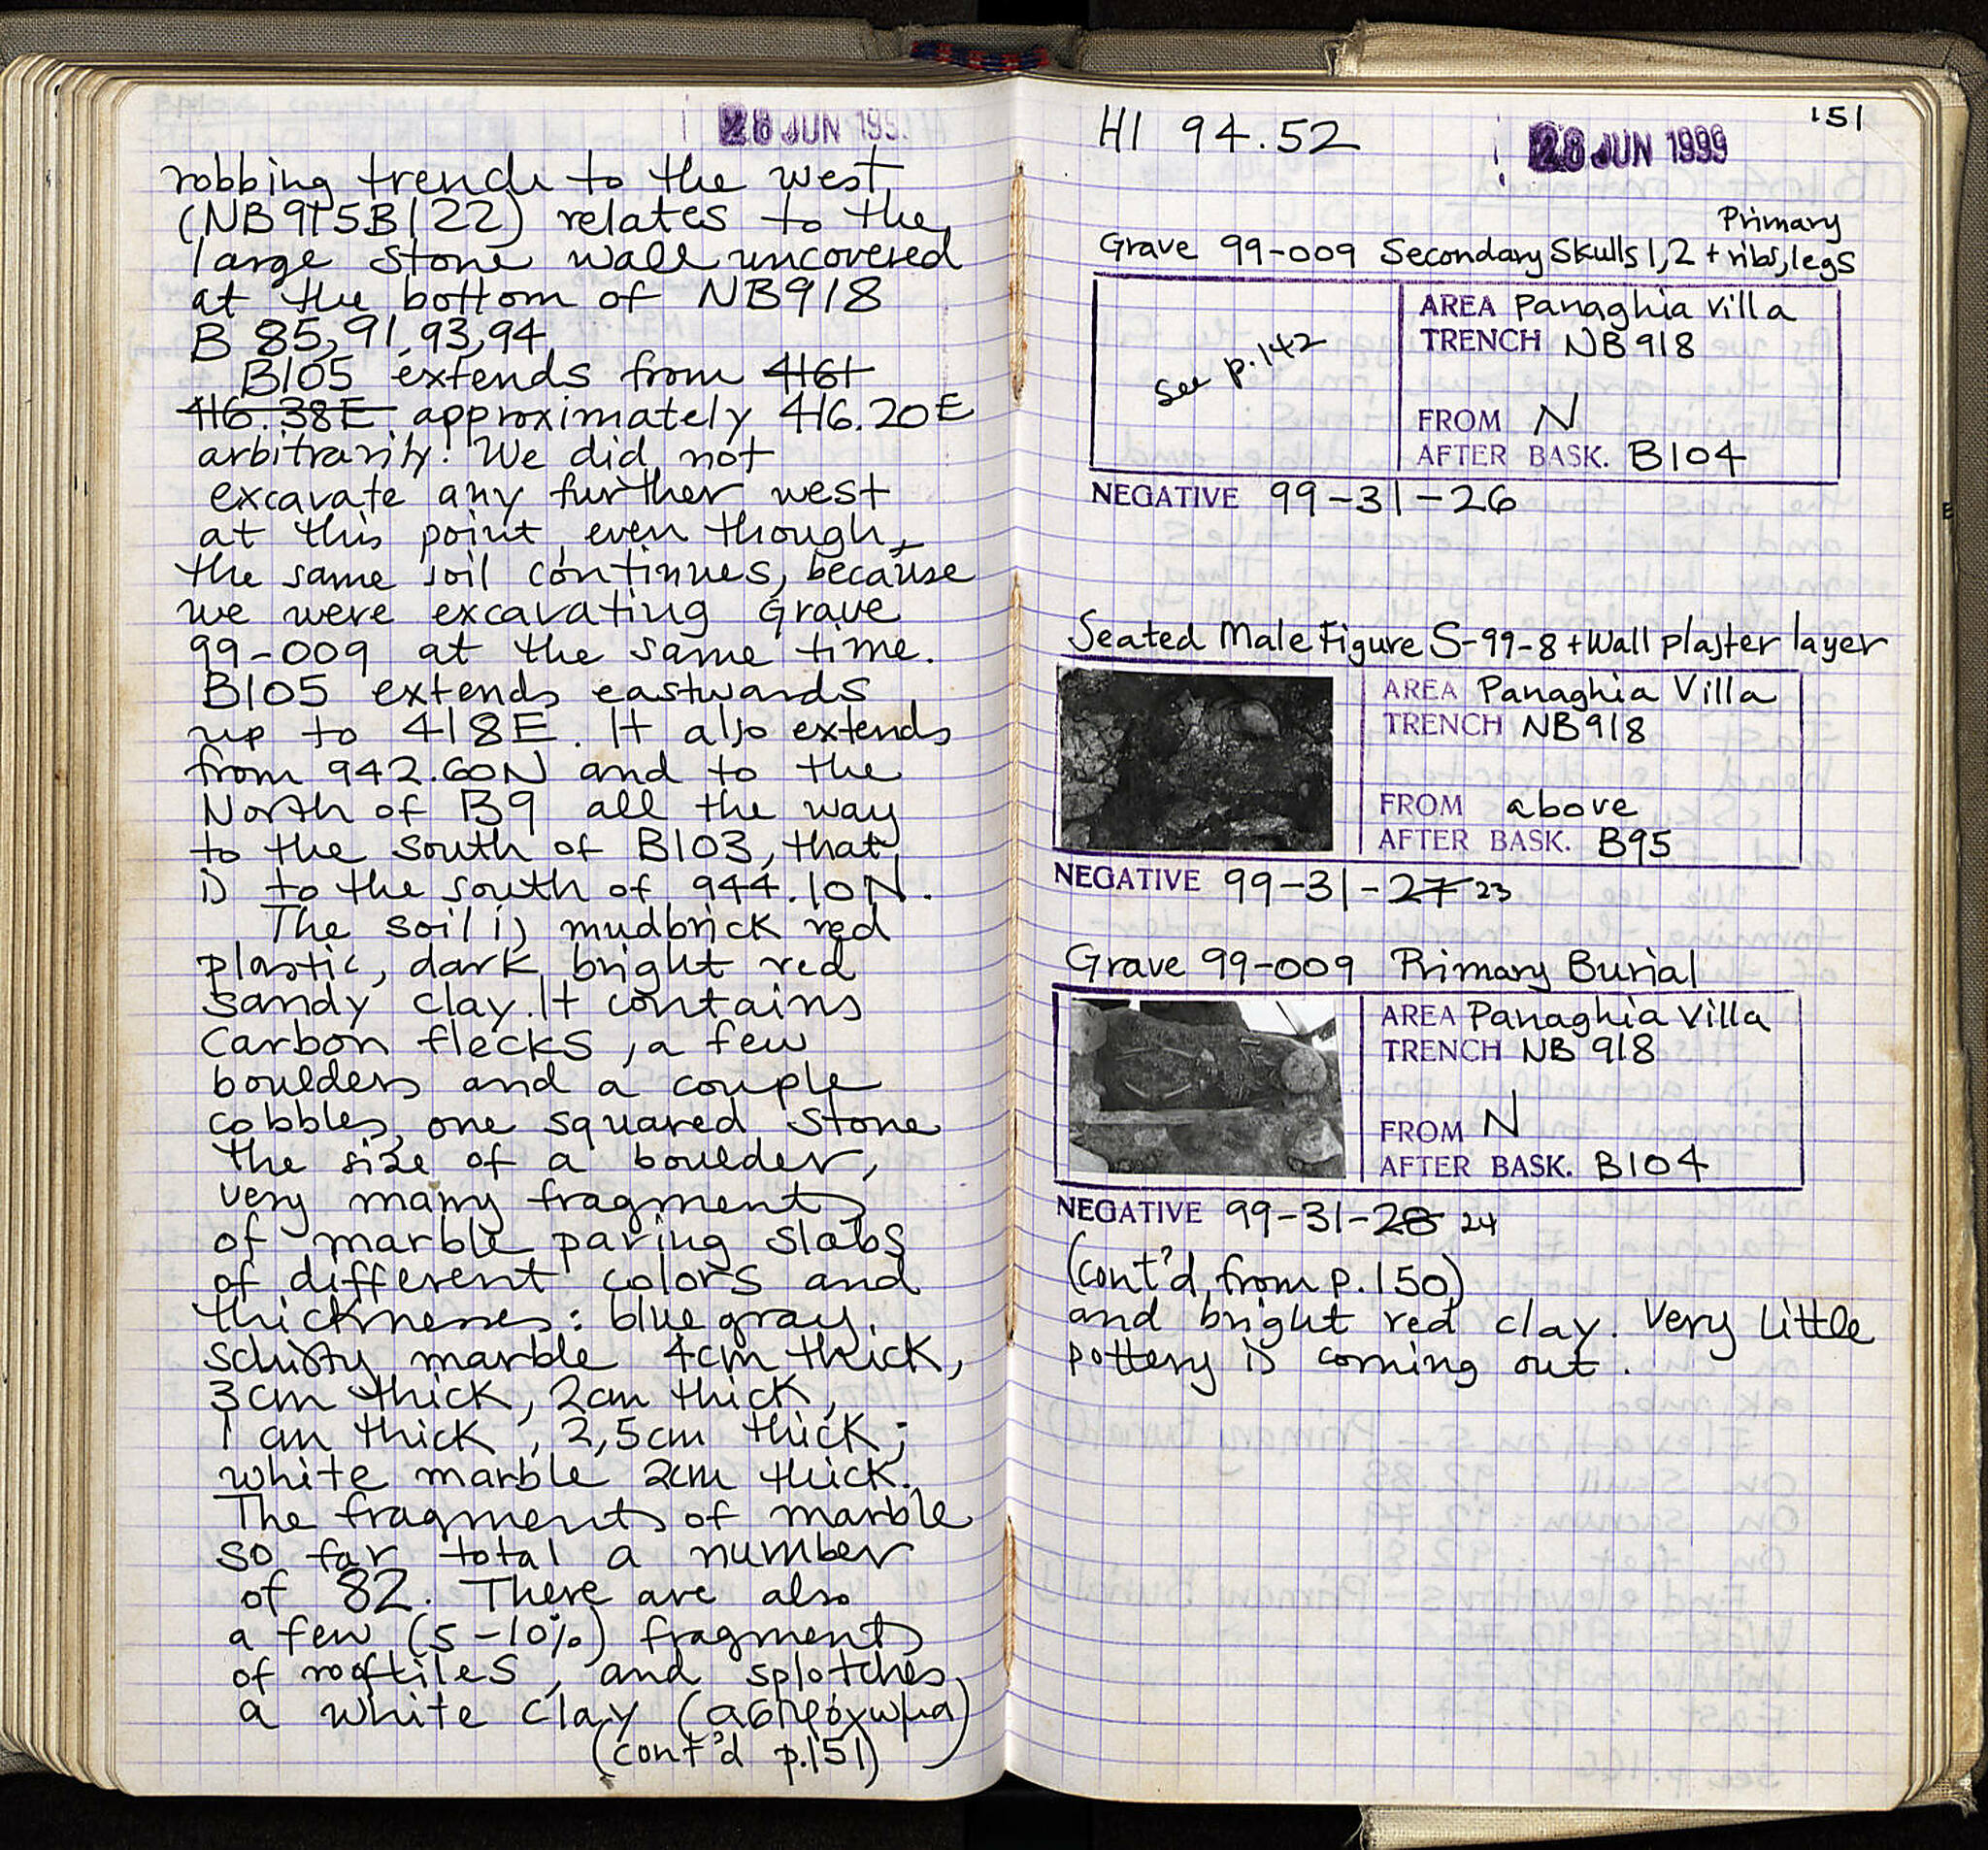 28 JUN 199
robbing trench to the west
(NB915B122) relates to the
large stone wall uncovered
at the bottom of NB918
B 85, 91, 93, 94
B105 extends from 4161
416.38E approximately 416.20E
arbitrarily! We did not
excavate any further west
at this point, even though
the same soil continues, because
we were excavating Grave
99-009 at the same time.
B105 extends eastwards
up to 418E. It also extends
from 942.60N and to the
North of B9 all the way
to the south of B103, that
is to the south of 944.10N.
The soil is mudbrick red
plastic, dark bright red
sandy clay. It contains
carbon flecks, a few
boulders and a couple
cobbles, one squared stone
the size of a boulder,
very many fragments
of marble paving slabs
of different colors and
thicknesses: blue gray,
schisty marble 4cm thick,
3cm thick, 2cm thick,
1 cm thick, 2,5cm thick;
white marble 2cm thick.
The fragments of marble
so far total a number
of 82. There are also
a few (5-10%) fragments
of rooftiles, and splotches
a white clay (ασπρόχωμα)
(cont'd p.151)
151
HI 94.52
28 JUN 1999
Primary
Grave 99-009 Secondary Skulls 1,2 + ribs, legs
see p.142
AREA Panaghia Villa
TRENCH NB918
FROM N
AFTER BASK. B104
NEGATIVE 99-31-26
Seated Male Figure S-99-8 + Wall plaster layer
AREA Panaghia Villa
TRENCH NB918
FROM above
AFTER BASK. B95
NEGATIVE 99-31-27 23
Grave 99-009 Primary Burial
AREA Panaghia Villa
TRENCH NB 918
FROM N
AFTER BASK. B104
NEGATIVE 99-31-28 24
(cont'd from p.150)
and bright red clay. Very little
pottery is coming out.